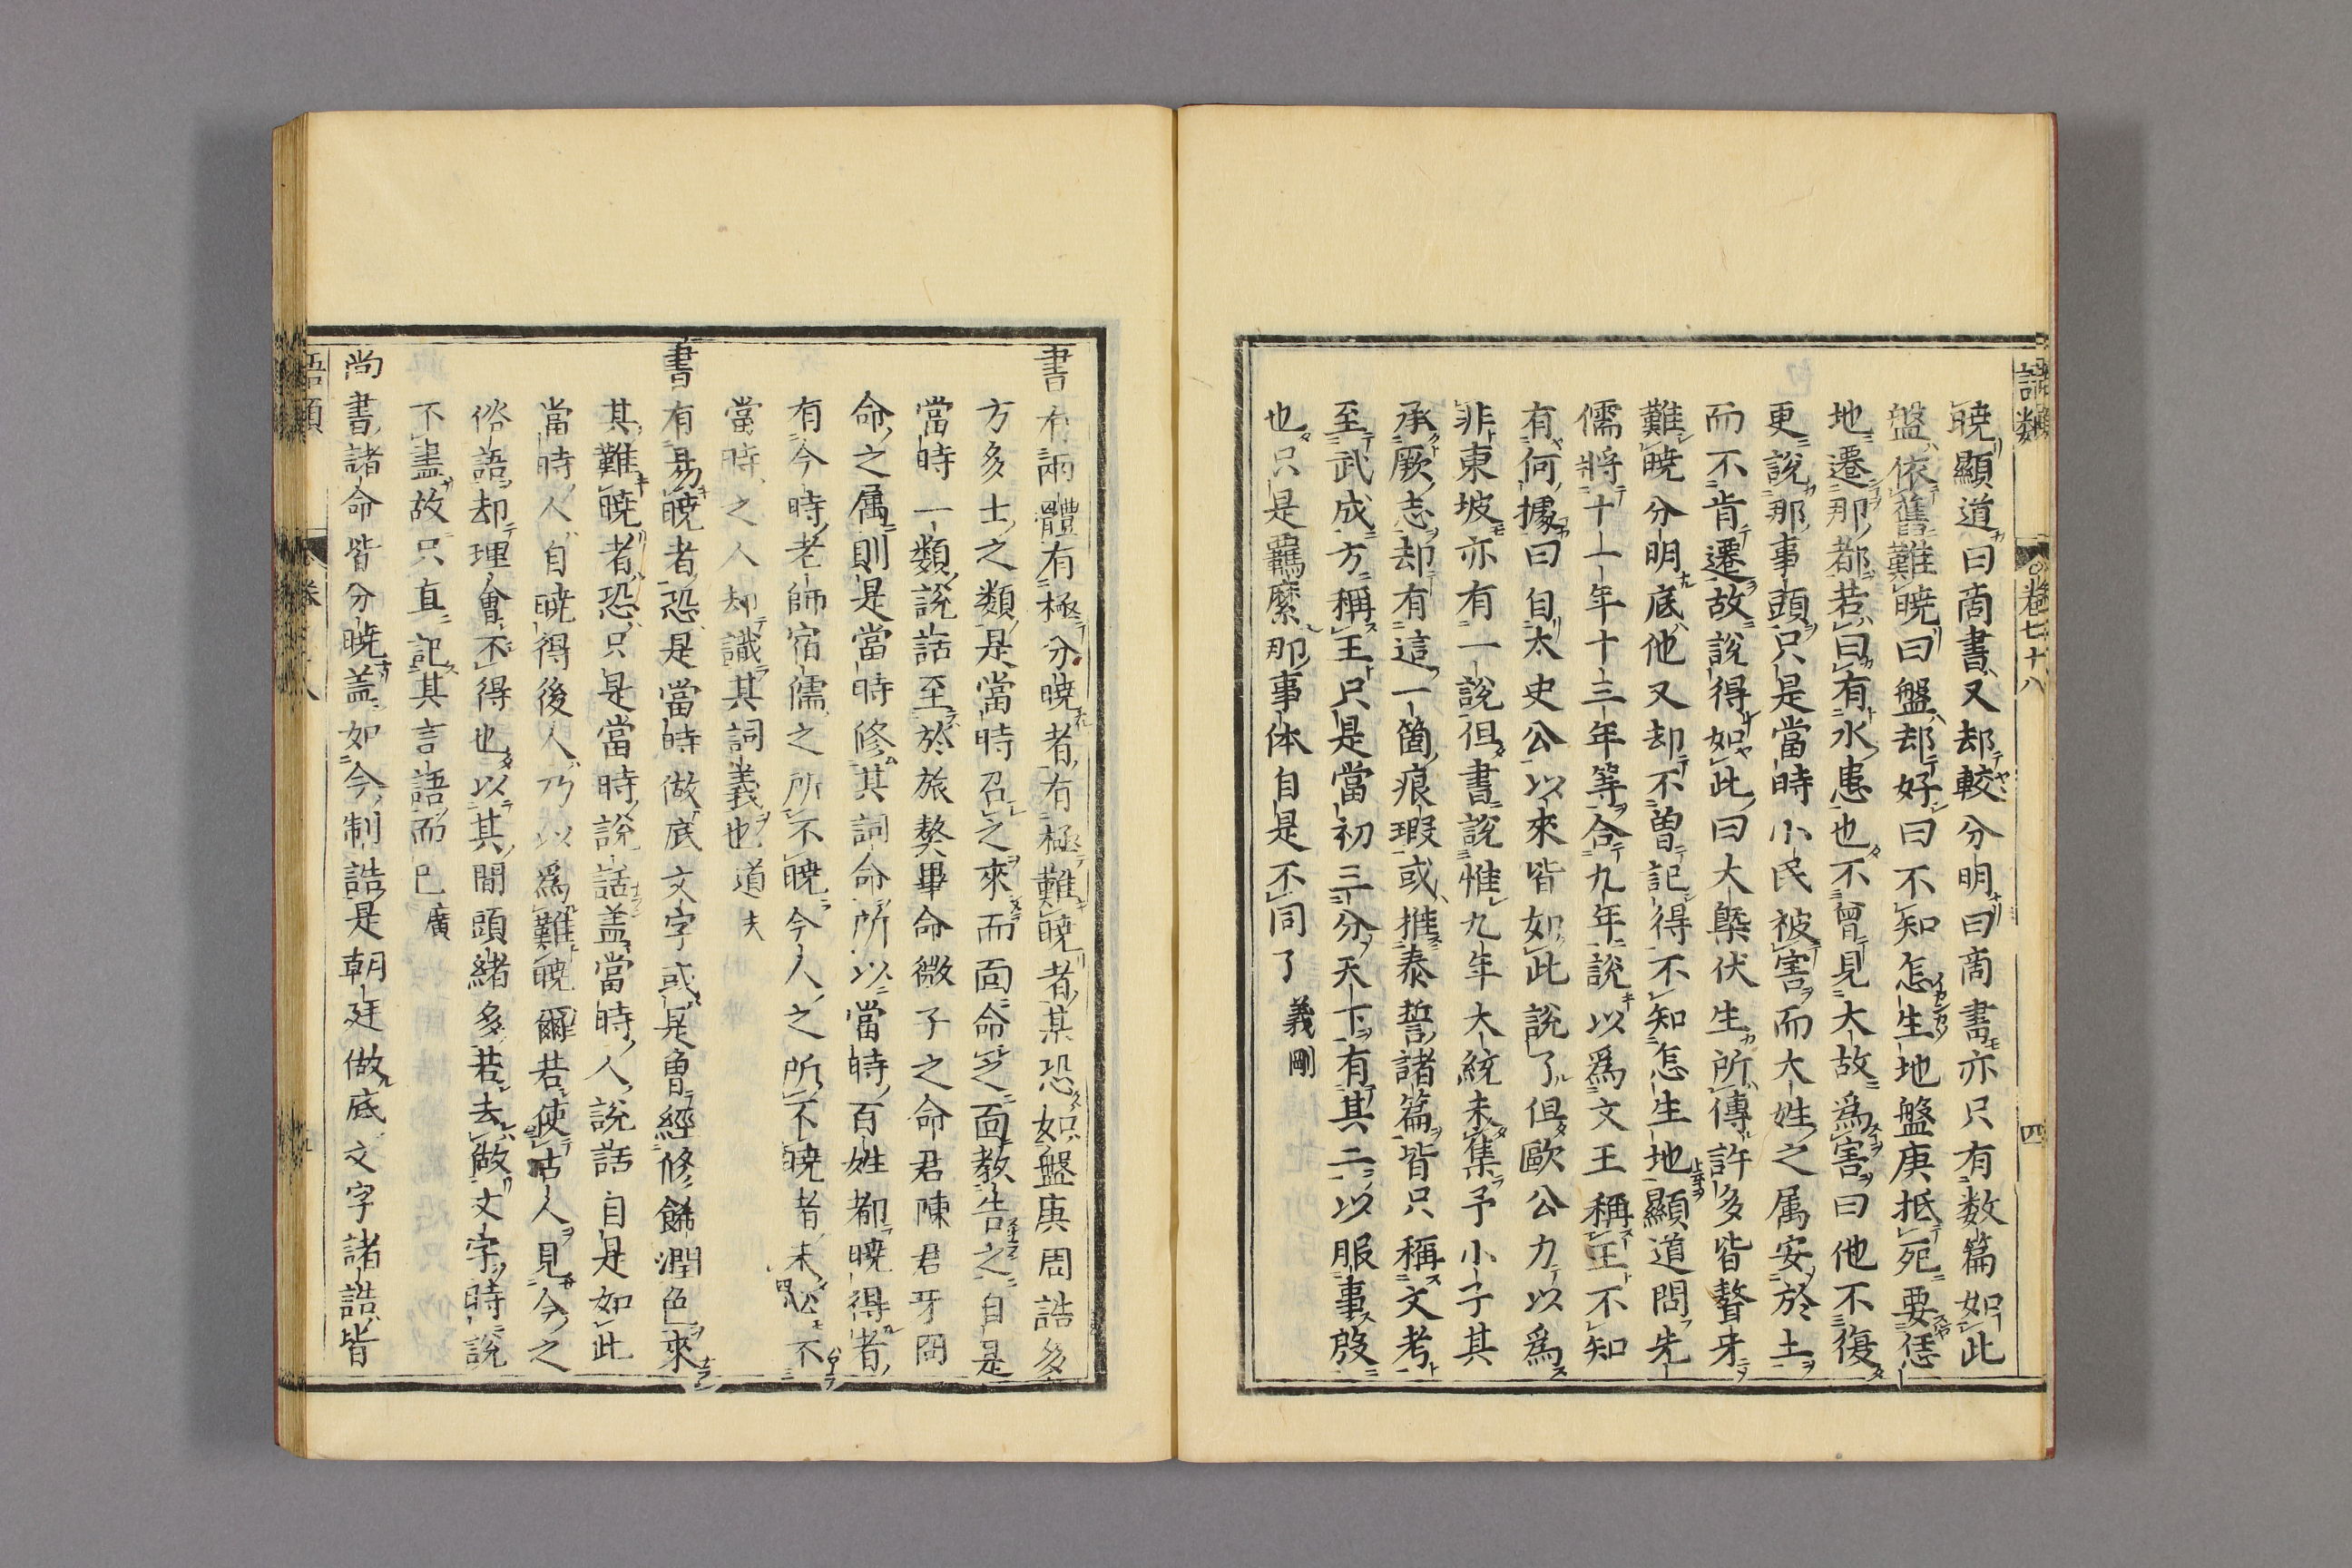 語類 卷七十八 四
曉顯道曰商書又却較分明曰商書亦只有数篇如此
盤依舊難曉曰盤却好曰不知怎生地盤庚抵死要恁
地遷那都若曰有水患也不曾見大故爲害曰他不復
更說那事頭只是當時小民被害而大姓之属安於土
而不肯遷故說得如此曰大槩伏生所傳許多皆聱牙
難曉分明底他又却不曽記得不知怎生地顯道問先
儒將十一年十三年等合九年說以爲文王稱王不知
有何據曰自太史公以來皆如此說了但歐公力以爲
非東坡亦有一說但書說惟九年大統未集予小子其
承厥志却有這一箇痕瑕或推泰誓諸篇皆只稱文考
至武成方稱王只是當初三分天下有其二以服事殷
也只是羈縻那事体自是不同了 義剛
書有兩體有極分曉者有極難曉者某恐如盤庚周誥多
方多士之類是當時召之來而面命之面教告之自是
當時一類說話至於旅獒畢命微子之命君陳君牙冏
命之属則是當時修其詞命所以當時百姓都曉得者
有今時老師宿儒之所不曉今人之所不曉者未必不
當時之人却識其詞義也 道夫
書有易曉者恐是當時做底文字或是曽經修餙潤色來
其難曉者恐只是當時說話盖當時人說話自是如此
當時人自曉得後人乃以爲難曉爾若使古人見今之
俗語却理會不得也以其間頭緒多若去做文字時說
不盡故只直記其言語而已 廣
尚書諸命皆分曉盖如今制誥是朝廷做底文字諸誥皆